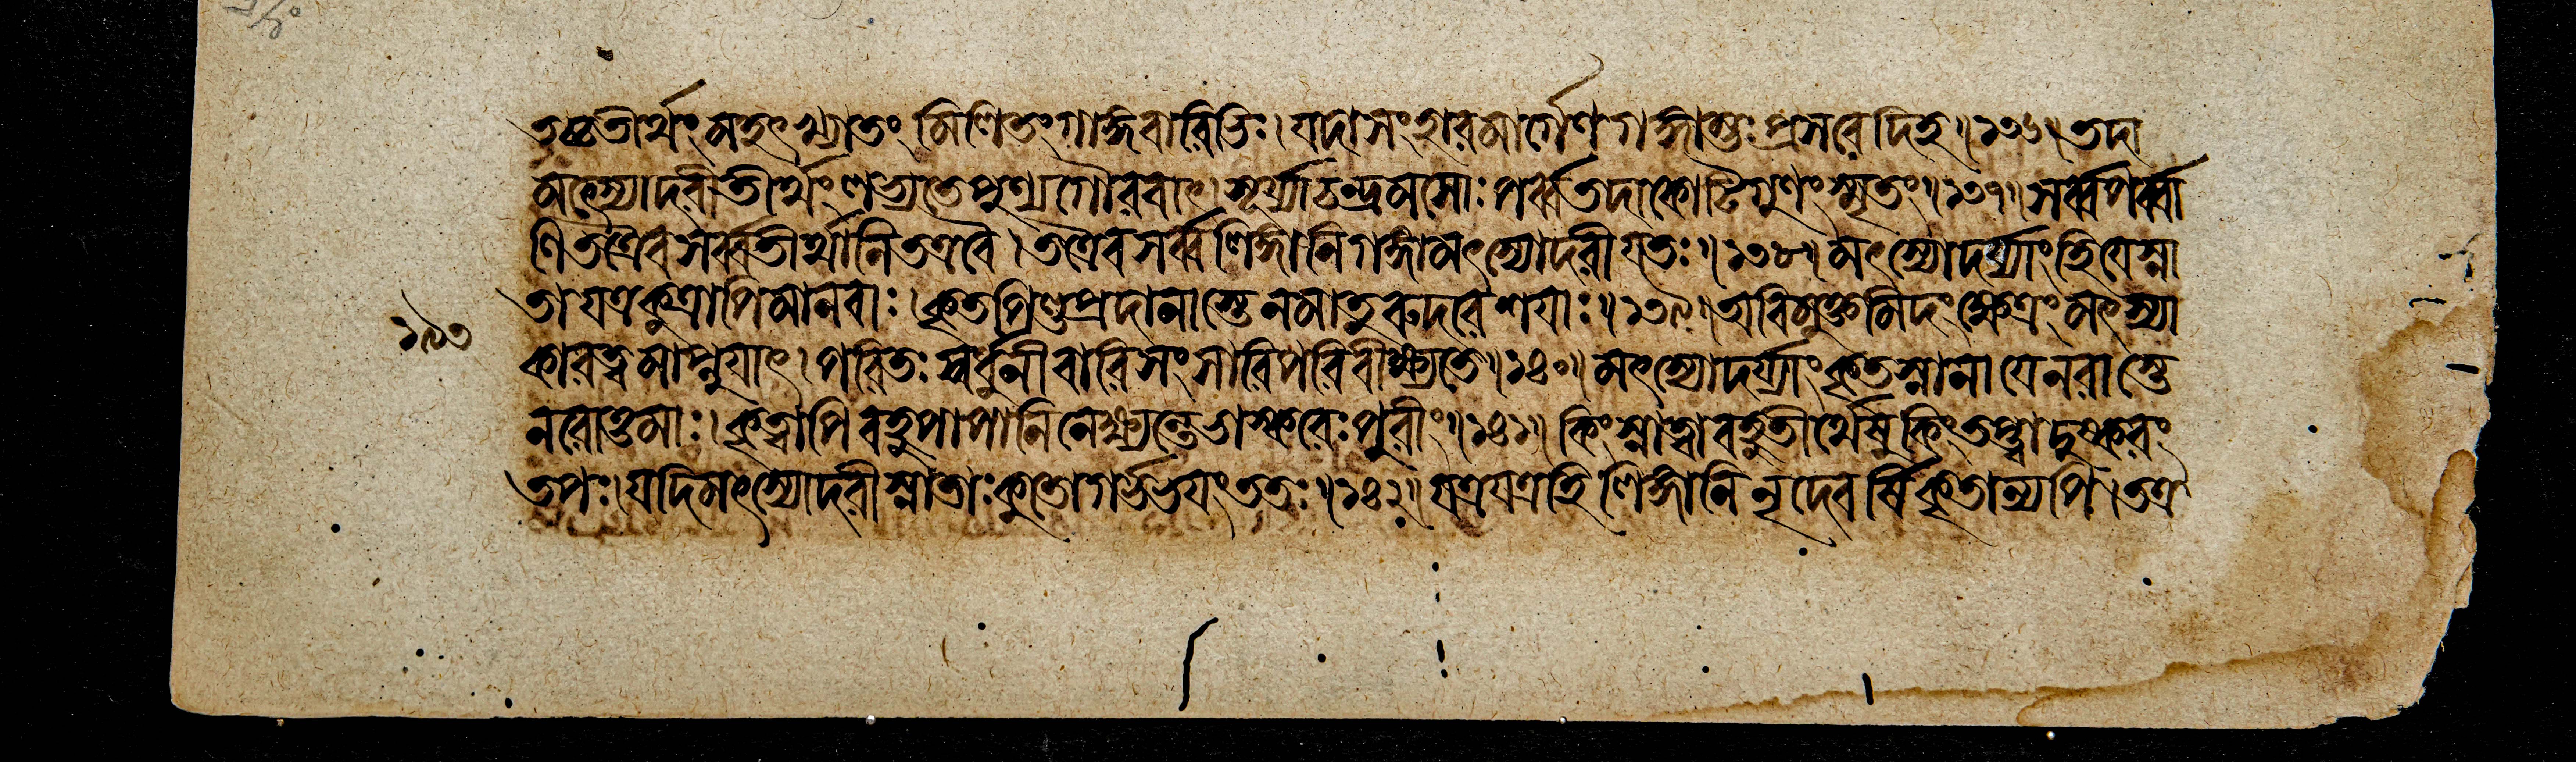 তচ্চতীর্থংমহৎখ্যাতং মিলিতংগাঙ্গবারিভিঃ। যদাসংহারমার্গেণগঙ্গাম্ভঃপ্রসরেদিহ॥১৩৬॥তদা
মৎস্যোদরীতীর্থংলভ্যতেপুণ্যগৌরবাৎ। সূর্য্যাচন্দ্রমসোঃপর্ব্বতদাকোটিগুণংস্মৃতং॥১৩৭॥সর্ব্বপর্ব্বা
ণিতত্রৈবসর্ব্বতীর্থানিতত্রবৈ। তত্রৈবসর্ব্বলিঙ্গানিগঙ্গামৎস্যোদরীযতঃ॥১৩৮॥মৎস্যোদর্য্যাংহিযেস্না
তাযত্রকুত্রাপিমানবাঃ। কৃতপিণ্ডপ্রদানাস্তেনমাতুরুদরেশয়াঃ॥১৩৯॥অবিমুক্তমিদংক্ষেত্রংমৎস্যা
১৯৩
কারত্বমাপ্নুযাৎ। পরিতঃস্বর্ধুনীবারিসংসারিপরিবীক্ষ্যতে॥১৪০॥মৎস্যোদর্য্যাংকৃতস্নানাযেনরাস্তে
নরোত্তমাঃ। কৃত্বাপিবহুপাপানিনেক্ষ্যন্তেভাস্করেঃপুরীং॥১৪১॥কিংস্নাত্বাবহুতীর্থেষুকিংতপ্ত্বাদুষ্করং
তপঃ। যদিমৎস্যোদরীস্নাতাঃকুতোগর্ভভয়ংততঃ॥১৪২॥যত্রযত্রহিলিঙ্গানিনৃদেবর্ষিকৃতান্যপি। তত্র